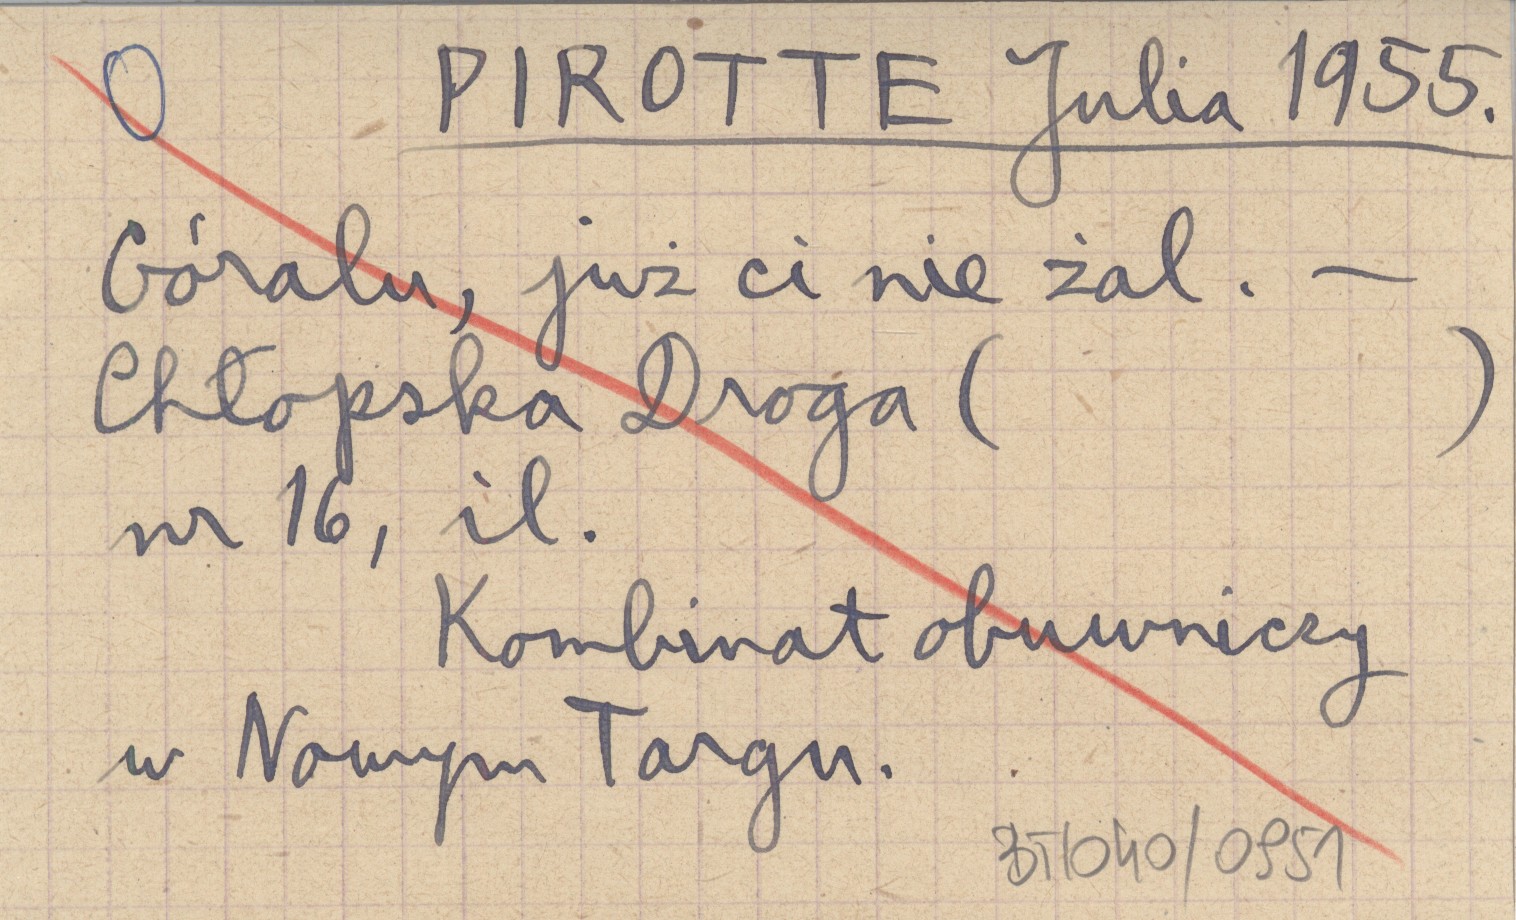 O PIROTTE Julia 1955.
Góralu, już ci nie żal. —
Chłopska Droga ( )
nr 16, il.
Kombinat obuwniczy
w Nowym Targu.
BT/040/0951